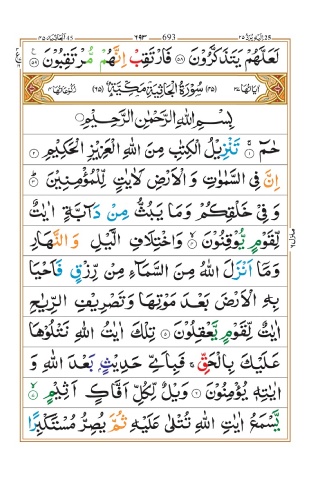 الجاثية ٤٥ ٦٩٣ 693 اليه يرد ٢٥
لَعَلَّهُمْ يَتَذَكَّرُوْنَ ۝٥٨ فَارْتَقِبْ اِنَّهُمْ مُّرْتَقِبُوْنَ ۝٥٩
اٰيَاتُهَا ٣٧ (٤٥) سُوْرَةُ الْجَاثِيَةِ مَكِّيَّةٌ (٦٥) رُكُوْعَاتُهَا ٤
بِسْمِ اللّٰهِ الرَّحْمٰنِ الرَّحِيْمِ
حٰمٓ ۝١ تَنْزِيْلُ الْكِتٰبِ مِنَ اللّٰهِ الْعَزِيْزِ الْحَكِيْمِ ۝٢
اِنَّ فِى السَّمٰوٰتِ وَ الْاَرْضِ لَاٰيٰتٍ لِّلْمُؤْمِنِيْنَ ۝٣
وَ فِيْ خَلْقِكُمْ وَمَا يَبُثُّ مِنْ دَآبَّةٍ اٰيٰتٌ
لِّقَوْمٍ يُّوْقِنُوْنَ ۝٤ وَاخْتِلَافِ الَّيْلِ وَ النَّهَارِ
وَمَآ اَنْزَلَ اللّٰهُ مِنَ السَّمَآءِ مِنْ رِّزْقٍ فَاَحْيَا
بِهِ الْاَرْضَ بَعْدَ مَوْتِهَا وَتَصْرِيْفِ الرِّيٰحِ
اٰيٰتٌ لِّقَوْمٍ يَّعْقِلُوْنَ ۝٥ تِلْكَ اٰيٰتُ اللّٰهِ نَتْلُوْهَا
عَلَيْكَ بِالْحَقِّ ۚ فَبِاَيِّ حَدِيْثٍۭ بَعْدَ اللّٰهِ وَ
اٰيٰتِهٖ يُؤْمِنُوْنَ ۝٦ وَيْلٌ لِّكُلِّ اَفَّاكٍ اَثِيْمٍ ۝٧
يَّسْمَعُ اٰيٰتِ اللّٰهِ تُتْلٰى عَلَيْهِ ثُمَّ يُصِرُّ مُسْتَكْبِرًا
منزل ٦